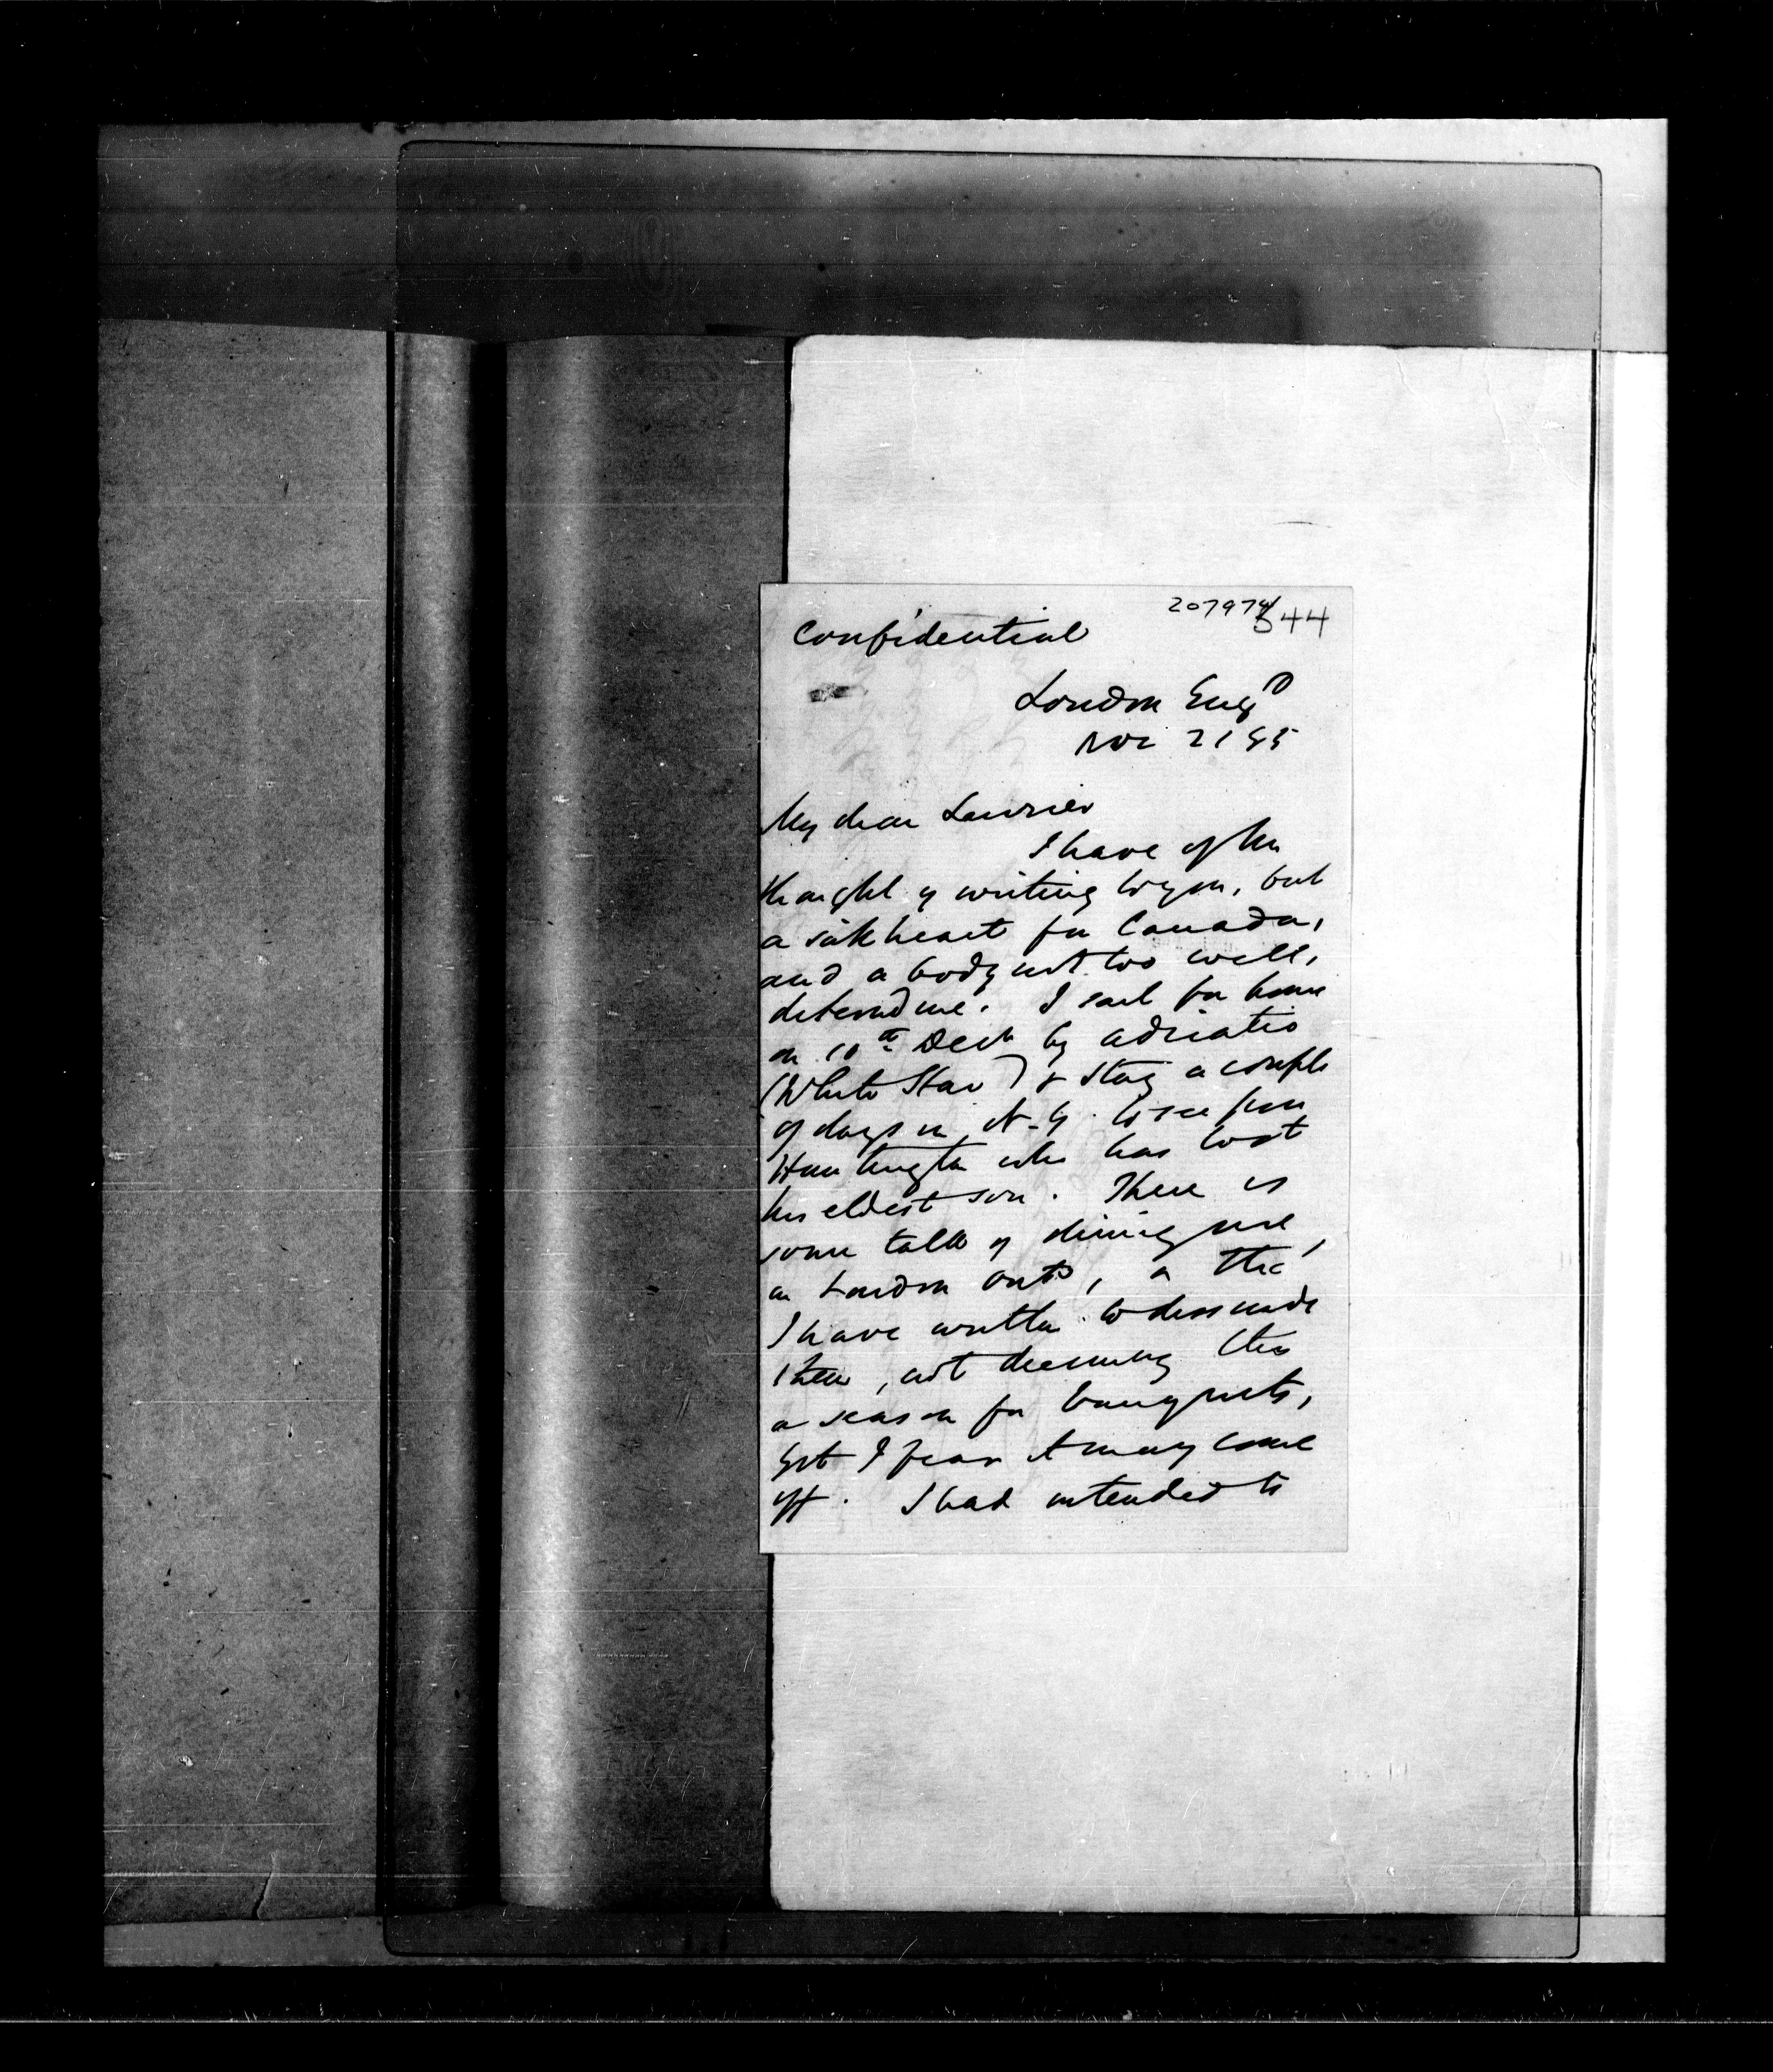 207974
344
Confidential
London Engd
Nov 21 85
My dear Laurier
I have often
thought of writing to you, but
a sick heart for Canada,
and a body not too well,
deterred me. I sail for home
on 10th Decr by Adriatic
(White Star) & stay a couple
of days in N-Y. to see poor
Huntington who has lost
his eldest son. There is
some talk of dining me,
in London Onto,
I have written to dissuade
them, not deeming this
a season for banquets,
yet I fear it may come
off. I had intended to